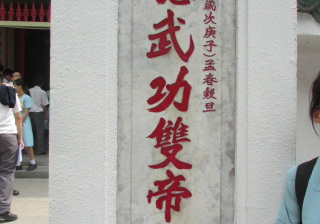 歲次庚子）孟春穀旦
武功雙帝